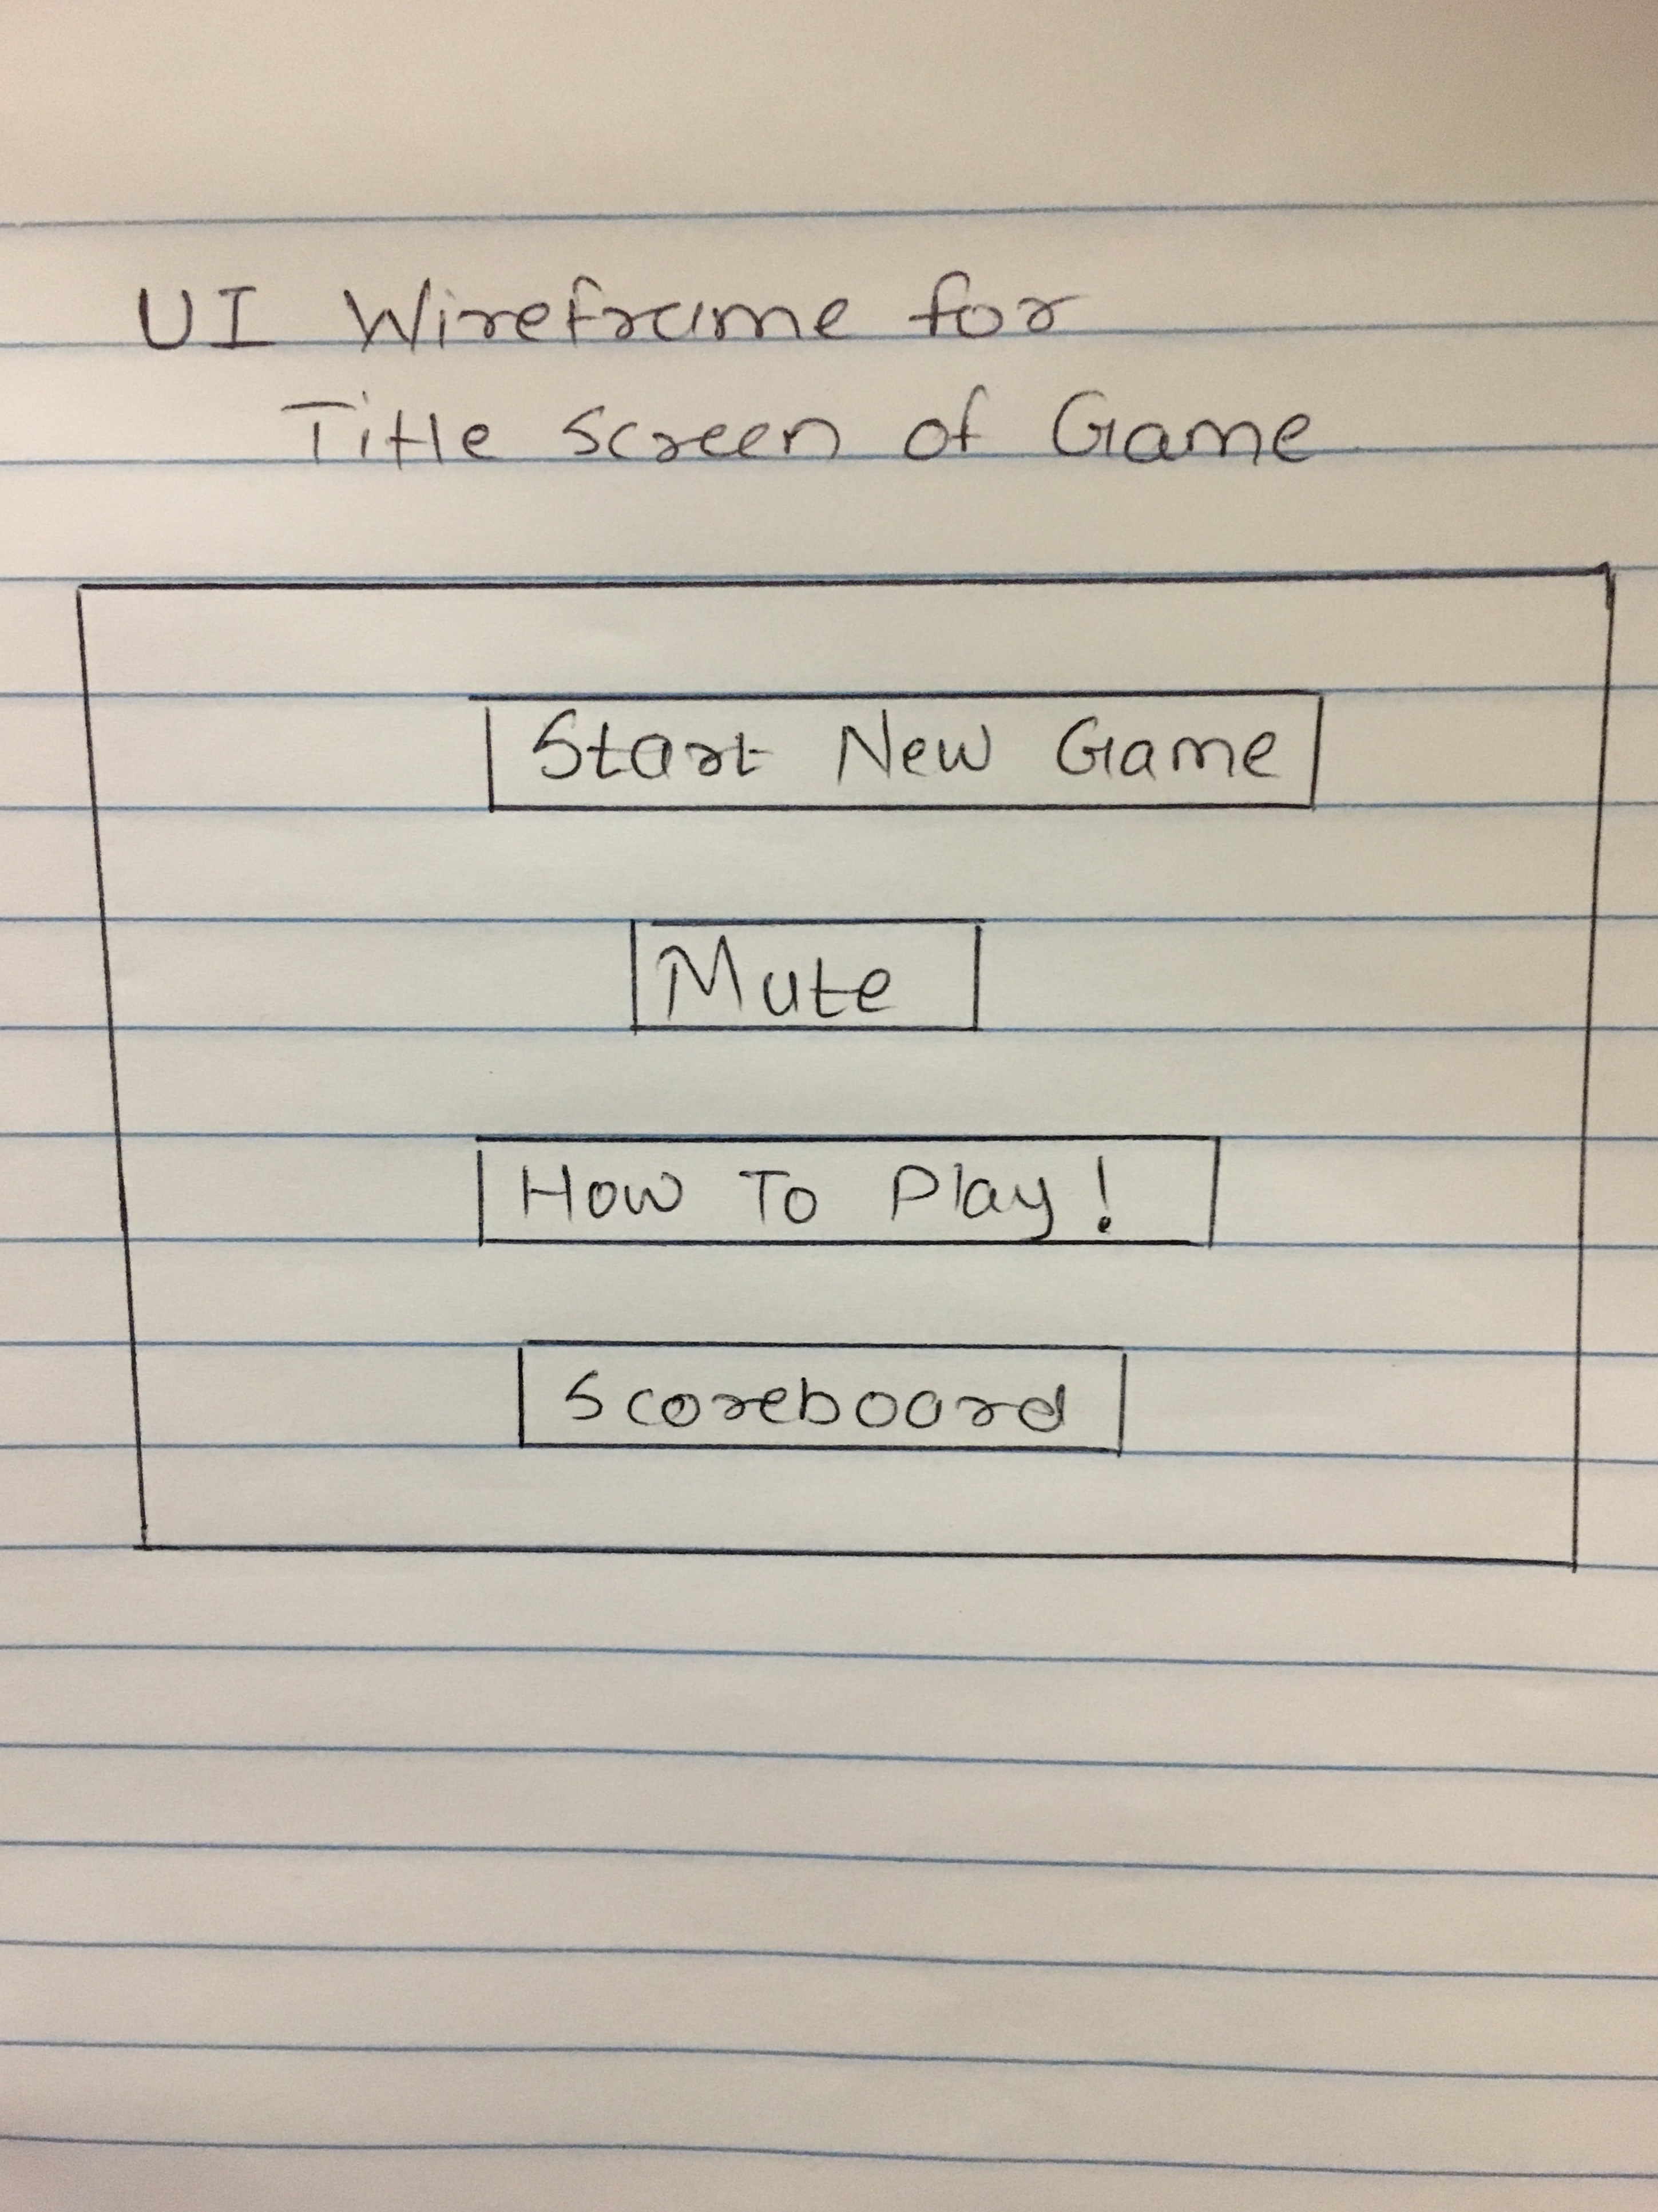 UI Wireframe for
Title screen of Game
Start New Game
Mute
How To Play!
Scoreboard